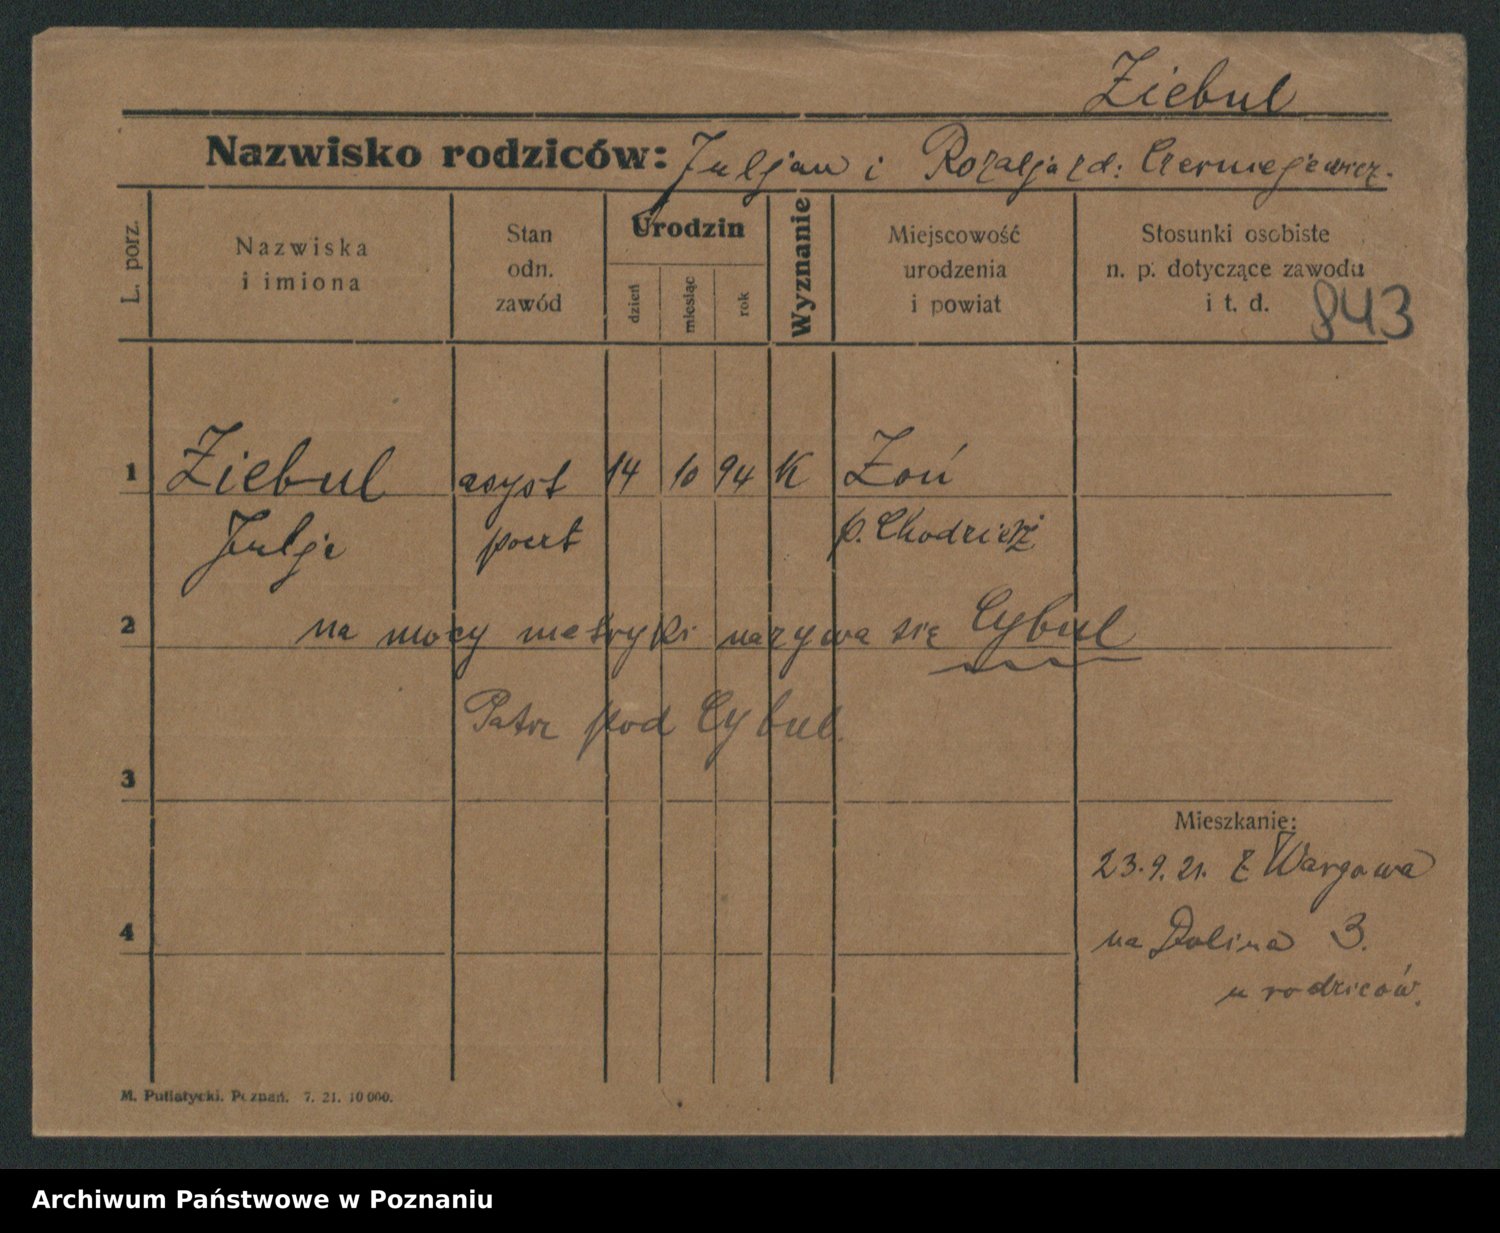 Ziebul
Nazwisko rodziców: Juljan i Rozalja zd: Czerniejewicz.
L. porz.
Nazwiska i imiona
Stan odn. zawód
Urodzin
dzień
miesiąc
rok
Wyznanie
Miejscowość urodzenia i powiat
Stosunki osobiste n. p. dotyczące zawodu i t. d.
843
1 Ziebul asyst 14 10 94 K Zoń
Julja poczt p. Chodzież
2 na mocy metryki nazywa się Cybul
Patrz pod Cybul.
3
Mieszkanie:
23.9.21. z Wargowa
4 na Dolina 3.
u rodziców.
M. Putiatycki. Poznań. 7. 21. 10 000.
Archiwum Państwowe w Poznaniu